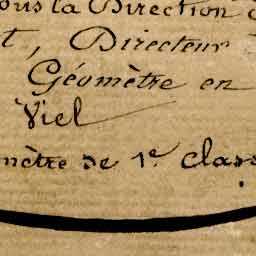 ous la Direction d
t, Directeur
Géomètre en
Viel
mètre de 1e. class